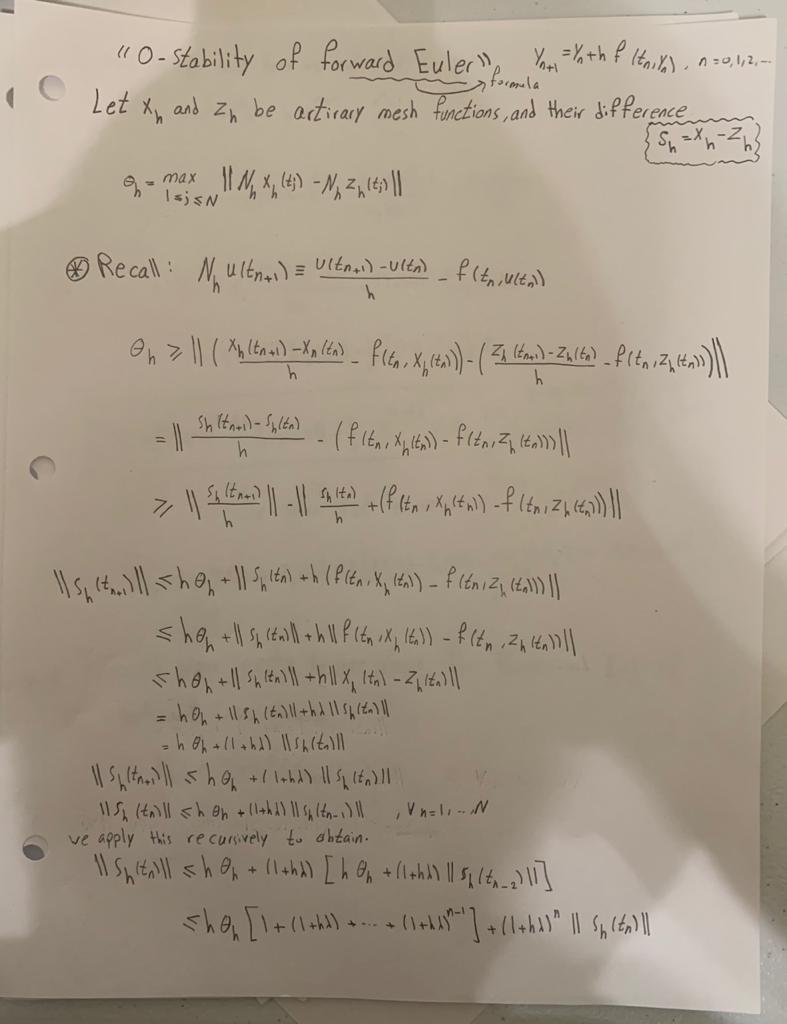 "0-stability of forward Euler" Y_{n+1} = Y_n + h f(t_n, Y_n), n=0,1,2,...
formula
Let x_h and z_h be artirary mesh functions, and their difference
S_h = x_h - z_h
θ_h = max_{1≤j≤N} || N_h x_h(t_j) - N_h z_h(t_j) ||
⊛ Recall: N_h u(t_{n+1}) ≡ (u(t_{n+1}) - u(t_n))/h - f(t_n, u(t_n))
θ_h ≥ || ( (x_h(t_{n+1}) - x_n(t_n))/h - f(t_n, x_h(t_n)) ) - ( (z_h(t_{n+1}) - z_h(t_n))/h - f(t_n, z_h(t_n)) ) ||
= || (s_h(t_{n+1}) - s_h(t_n))/h - (f(t_n, x_h(t_n)) - f(t_n, z_h(t_n))) ||
≥ || s_h(t_{n+1})/h || - || s_h(t_n)/h + (f(t_n, x_h(t_n)) - f(t_n, z_h(t_n))) ||
|| s_h(t_{n+1}) || ≤ h θ_h + || s_h(t_n) + h (f(t_n, x_h(t_n)) - f(t_n, z_h(t_n))) ||
≤ h θ_h + || s_h(t_n) || + h || f(t_n, x_h(t_n)) - f(t_n, z_h(t_n)) ||
≤ h θ_h + || s_h(t_n) || + h || x_h(t_n) - z_h(t_n) ||
= h θ_h + || s_h(t_n) || + hλ || s_h(t_n) ||
= h θ_h + (1+hλ) || s_h(t_n) ||
|| s_h(t_{n+1}) || ≤ h θ_h + (1+hλ) || s_h(t_n) ||
|| s_h(t_n) || ≤ h θ_h + (1+hλ) || s_h(t_{n-1}) || , ∀ n=1,...N
we apply this recursively to obtain.
|| s_h(t_n) || ≤ h θ_h + (1+hλ) [ h θ_h + (1+hλ) || s_h(t_{n-2}) || ]
≤ h θ_h [ 1 + (1+hλ) + ... + (1+hλ)^{n-1} ] + (1+hλ)^n || s_h(t_n) ||